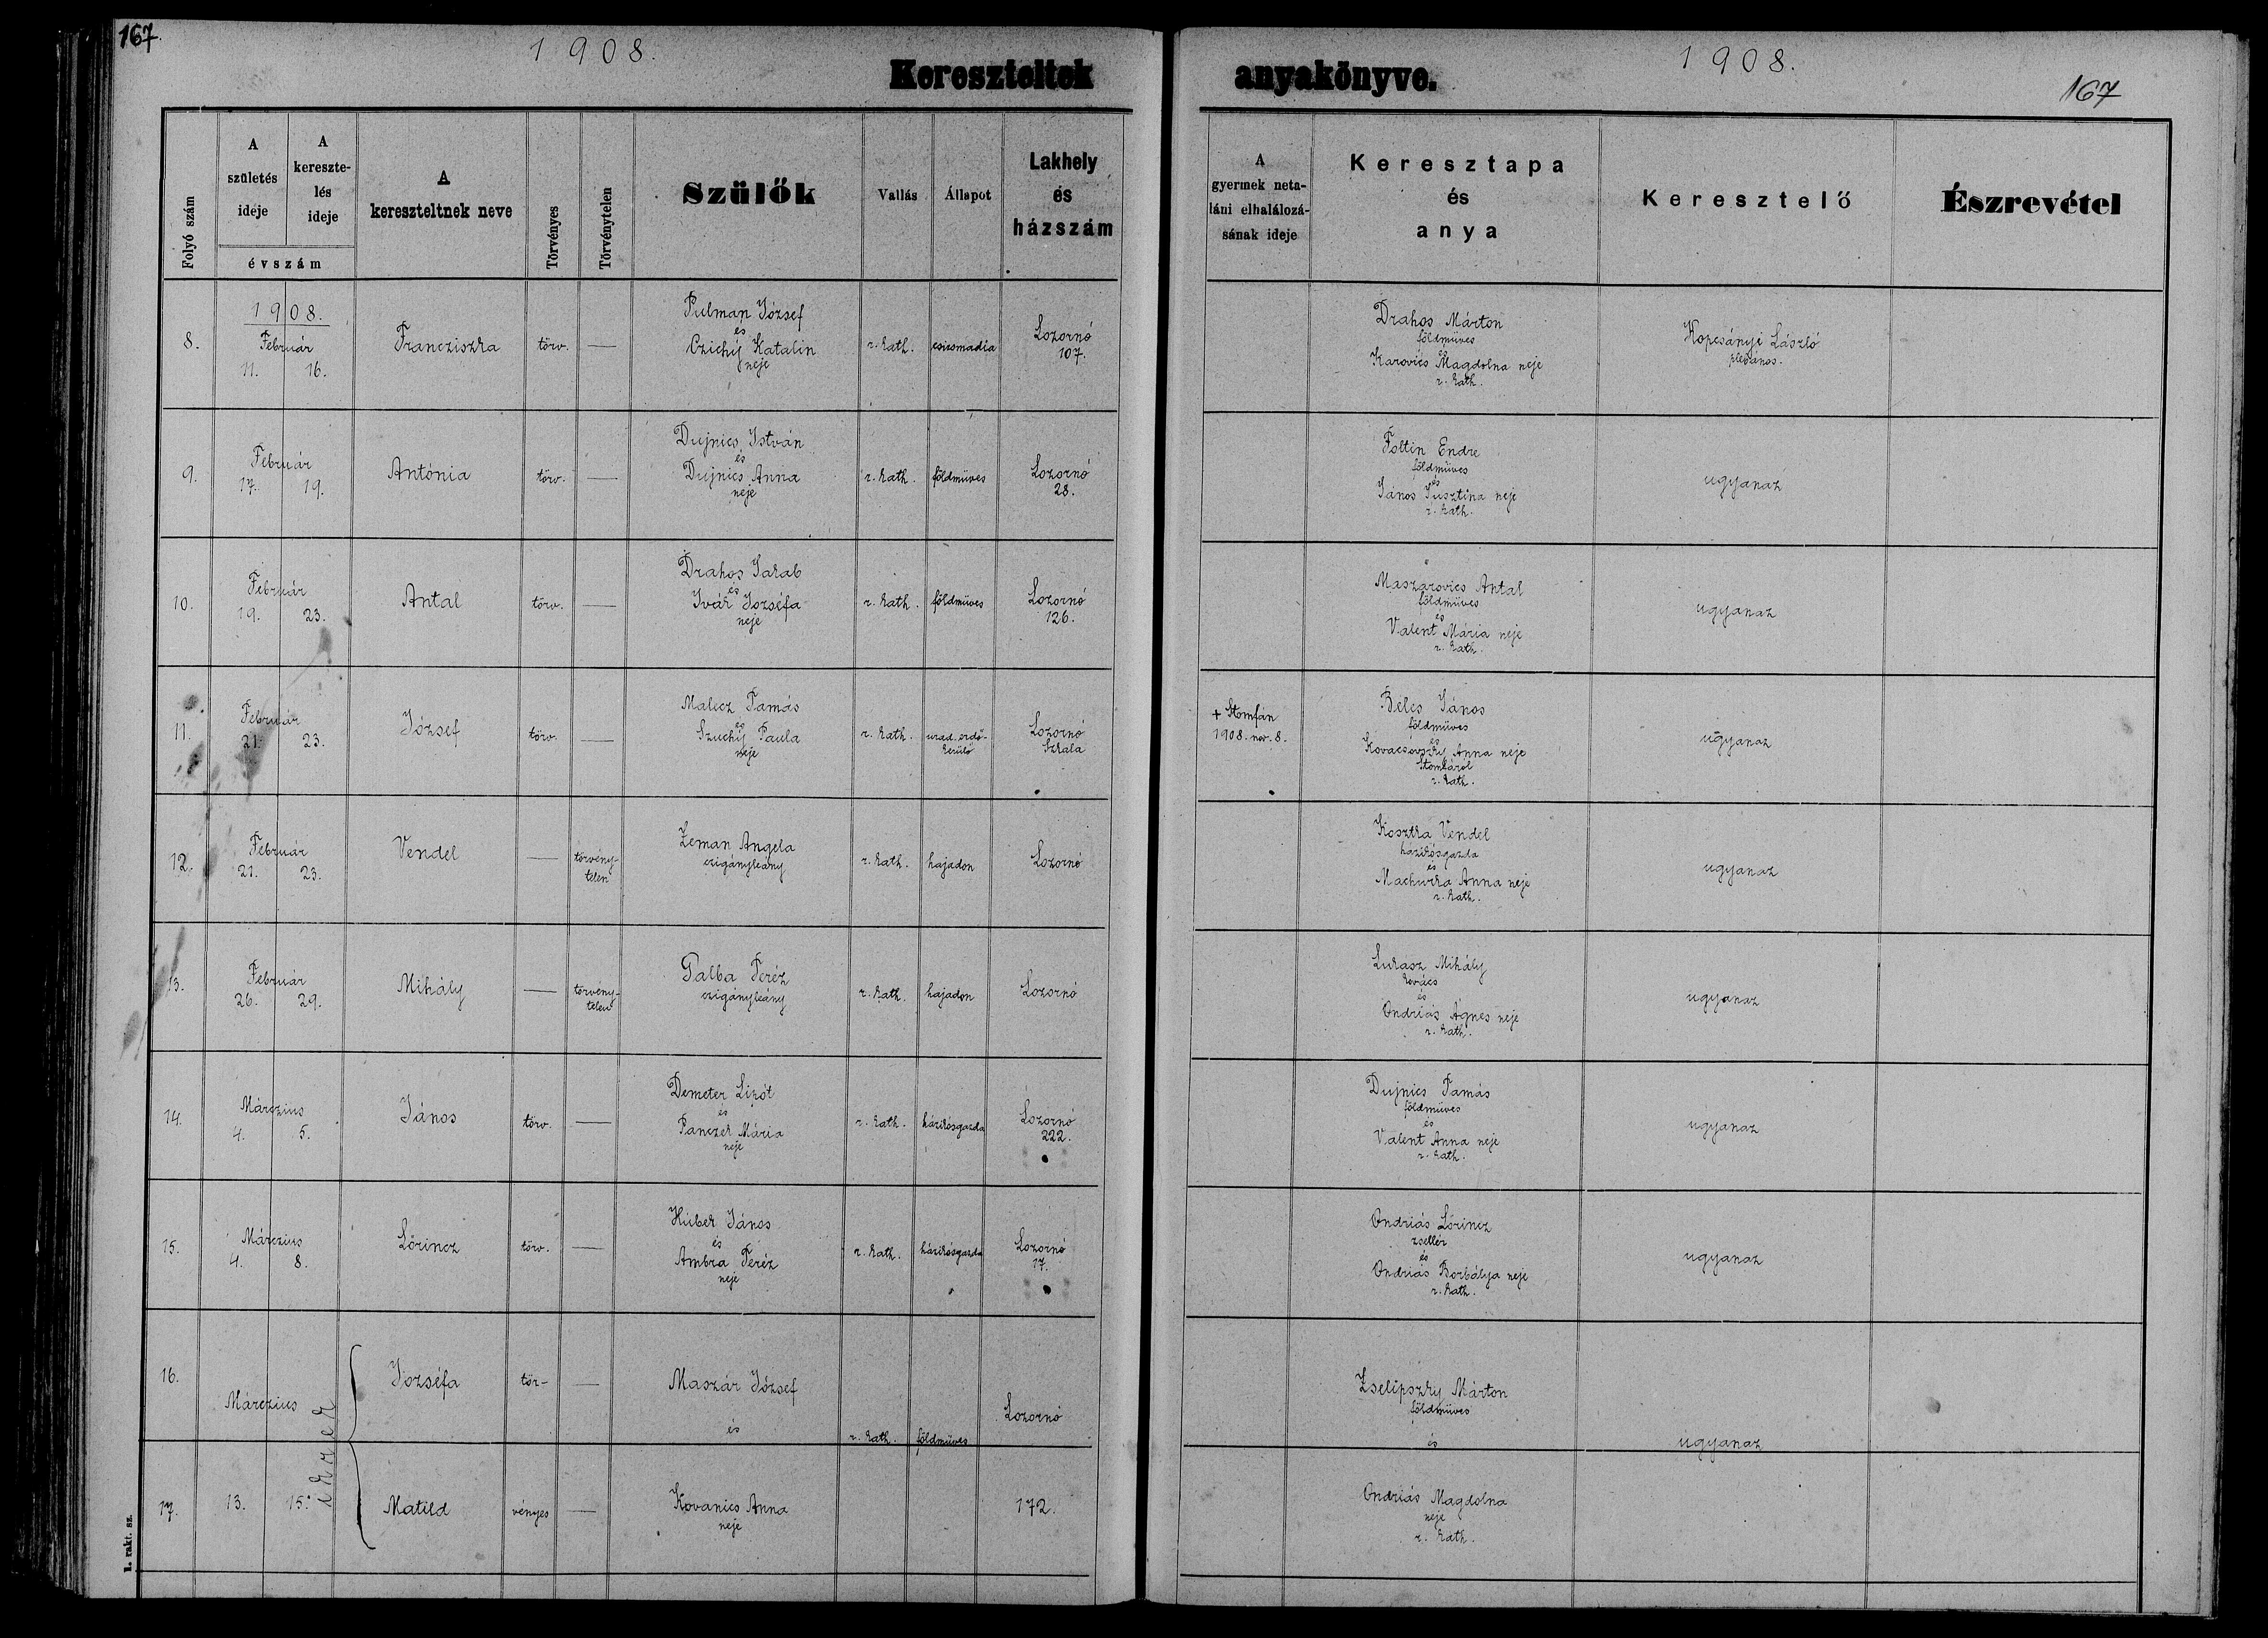 167.
1908.
Kereszteltek
anyakönyve.
1908.
167
Folyó szám
A
születés
ideje
A
kereszte-
lés
ideje
évszám
A
kereszteltnek neve
Törvényes
Törvénytelen
Szülők
Vallás
Állapot
Lakhely
és
házszám
A
gyermek neta-
láni elhalálozá-
sának ideje
Keresztapa
és
anya
Keresztelő
Észrevétel
8.
1908.
Február
11. 16.
Francziszka
törv.
—
Pulman József
és
Czichij Katalin
neje
r. kath.
csizmadia
Lozornó
107.
Drahos Márton
földmüves
és
Karovics Magdolna neje
r. kath.
Kopcsányi László
plébános.
9.
Február
17. 19.
Antónia
törv.
—
Dujnics István
és
Dujnics Anna
neje
r. kath.
földmüves
Lozornó
28.
Foltin Endre
földmüves
és
János Jusztina neje
r. kath.
ugyanaz
10.
Február
19. 23.
Antal
törv.
—
Drahos Jakab
és
Ivák Jozséfa
neje
r. kath.
földmüves
Lozornó
126.
Maszarovics Antal
földmüves
és
Valent Mária neje
r. kath.
ugyanaz
11.
Február
21. 23.
József
törv.
—
Malecz Tamás
és
Szuchij Paula
neje
r. kath.
urad. erdő-
kerülő
Lozornó
Szkala
+ Stomfán
1908. nov. 8.
Bélcs János
földmüves
és
Kovacsovszky Anna neje
Stomfáról
r. kath.
ugyanaz
12.
Február
21. 23.
Vendel
—
törvény-
telen
Zeman Angela
czigányleány
r. kath.
hajadon
Lozornó
Kosztka Vendel
házikósgazda
és
Machurka Anna neje
r. kath.
ugyanaz
13.
Február
26. 29.
Mihály
—
törvény-
telen
Galba Teréz
czigányleány
r. kath.
hajadon
Lozornó
Lukasz Mihály
kovács
és
Ondriás Ágnes neje
r. kath.
ugyanaz
14.
Márczius
4. 5.
János
törv.
—
Demeter Lizót
és
Panczek Mária
neje
r. kath.
házikósgazda
Lozornó
222.
Dujnics Tamás
földmüves
és
Valent Anna neje
r. kath.
ugyanaz
15.
Márczius
4. 8.
Lőrincz
törv.
—
Hubek János
és
Ambra Teréz
neje
r. kath.
házikósgazda
Lozornó
17.
Ondriás Lőrincz
zsellér
és
Ondriás Borbálya neje
r. kath.
ugyanaz
16.
Márczius
ikrek
Jozséfa
tör-
—
Maszár József
és
r. kath.
földmüves
Lozornó
Zselipszky Márton
földmüves
és
ugyanaz
17.
13. 15.
Matild
vényes
—
Kovanics Anna
neje
172.
Ondriás Magdolna
neje
r. kath.
1. rakt. sz.